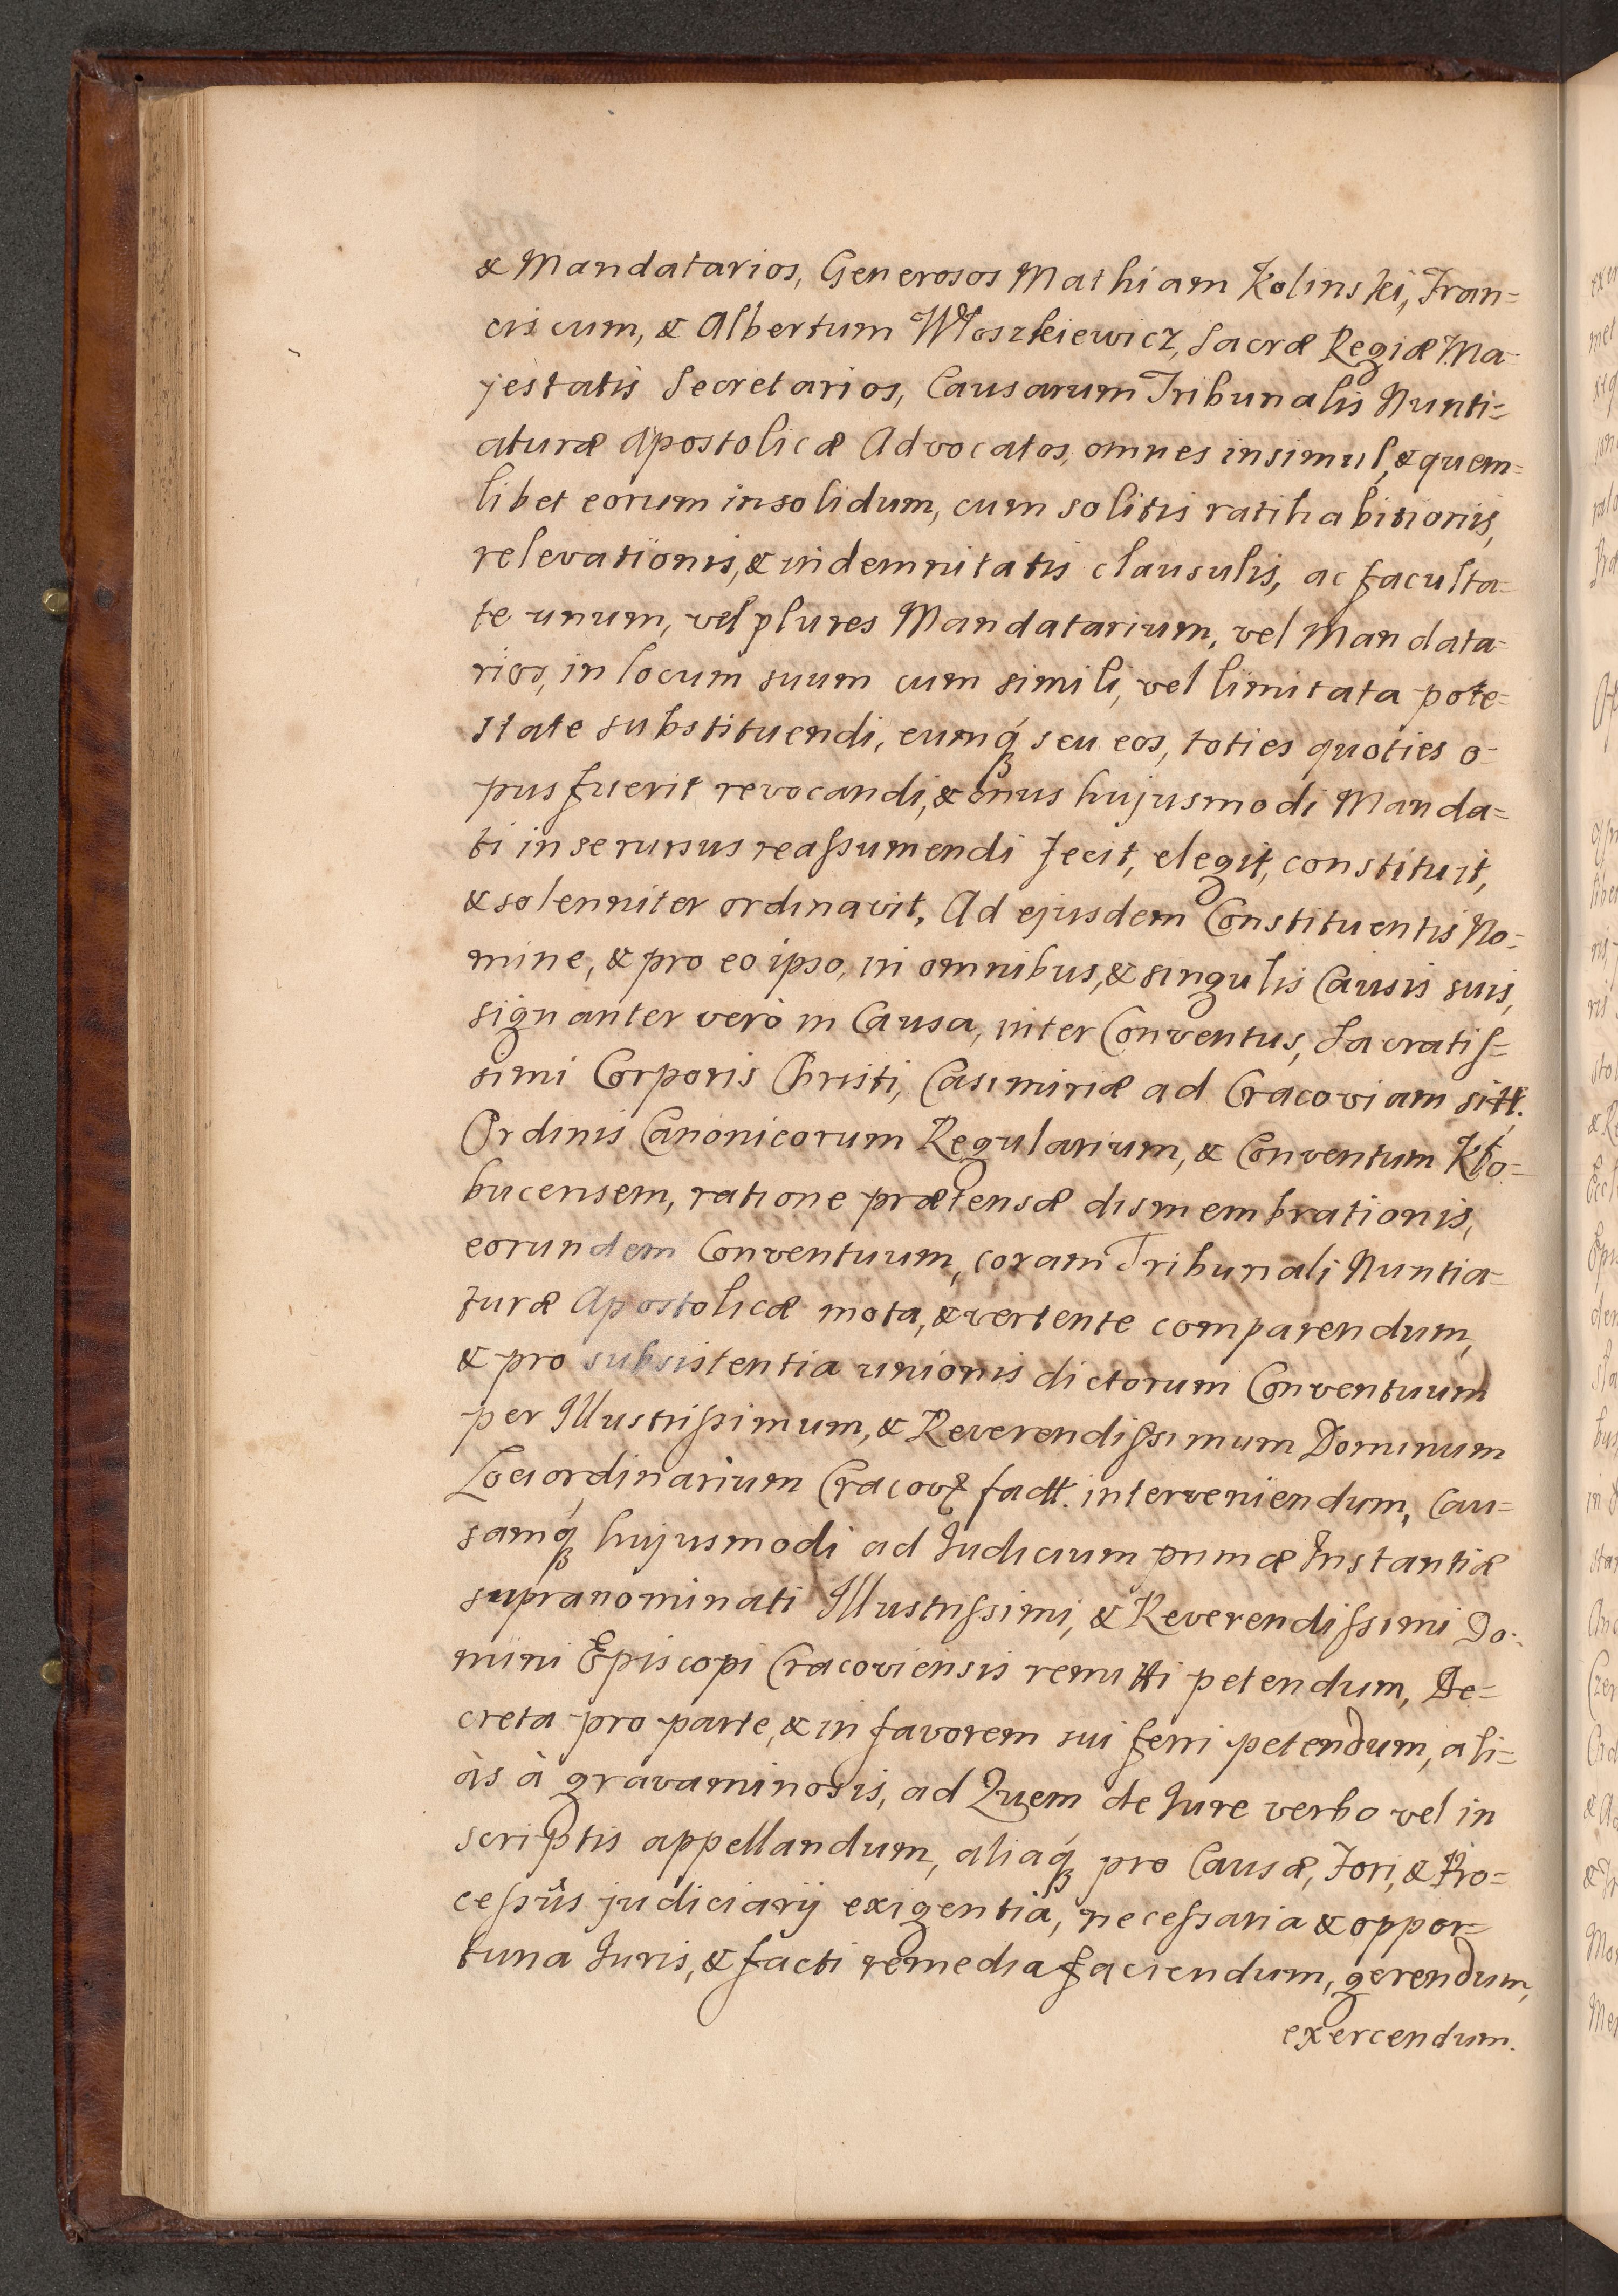 & Mandatarios, Generosos Mathiam Kolinski, Fran=
ciscum, & Albertum Włoszkiewicz, Sacræ Regiæ Ma=
jestatis Secretarios, Causarum Tribunalis Nunti=
aturæ Apostolicæ Advocatos, omnes insimul, & quem=
libet eorum insolidum, cum solitis ratihabitionis,
relevationis, & indemnitatis clausulis, ac faculta=
te unum, vel plures Mandatarium, vel Mandata=
rios, in locum suum cum simili, vel limitata pote=
state substituendi, eumq́ꝫ seu eos, toties quoties o=
pus fuerit revocandi, & onus hujusmodi Manda=
ti in se rursus reaſsumendi fecit, elegit, constituit,
& solenniter ordinavit. Ad ejusdem Constituentis No=
mine, & pro eo ipso, in omnibus, & singulis Causis suis,
signanter verò in Causa, inter Conventus, Sacratiſ=
simi Corporis Christi, Casimiriæ ad Cracoviam sitt.
Ordinis Canonicorum Regularium, & Conventum Kło=
bucensem, ratione prætensæ dismembrationis,
eorundem Conventuum, coram Tribunali Nuntia=
turæ Apostolicæ mota, & vertente comparendum,
& pro subsistentia unionis dictorum Conventuum
per Illustriſsimum, & Reverendiſsimum Dominum
Lociordinarium Cracovꝫ factt. interveniendum, Cau=
samq́ꝫ hujusmodi ad Judicium primæ Instantiæ
supranominati Illustriſsimi, & Reverendiſsimi Do=
mini Episcopi Cracoviensis remitti petendum, De=
creta pro parte, & in favorem sui ferri petendum, ali=
às à gravaminosis, ad Quem de Jure verbo vel in
scriptis appellandum, aliaq́ꝫ pro Causæ, Fori, & Pro=
ceſsûs judiciarij exigentia, neceſsaria & oppor=
tuna Juris, & facti remedia faciendum, gerendum,
exercendum.